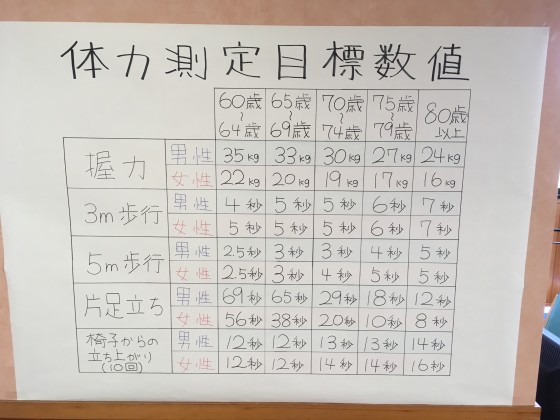 体力測定目標数値
60歳～64歳 65歳～69歳 70歳～74歳 75歳～79歳 80歳以上
握力 男性 35kg 33kg 30kg 27kg 24kg
女性 22kg 20kg 19kg 17kg 16kg
3m歩行 男性 4秒 5秒 5秒 6秒 7秒
女性 5秒 5秒 5秒 6秒 7秒
5m歩行 男性 2.5秒 3秒 3秒 4秒 5秒
女性 2.5秒 3秒 4秒 5秒 5秒
片足立ち 男性 69秒 65秒 29秒 18秒 12秒
女性 56秒 38秒 20秒 10秒 8秒
椅子からの立ち上がり(10回) 男性 12秒 12秒 13秒 13秒 14秒
女性 12秒 12秒 14秒 14秒 16秒